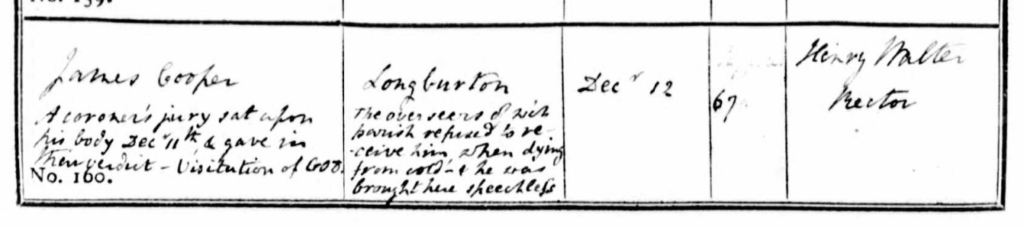 No. 159.
James Cooper
A coroner's jury sat upon
his body Decr. 11th, & gave in
their verdict - Visitation of GOD.
No. 160.
Longburton
The overseers of wich
parish refused to re-
-ceive him, when dying
from cold, & he was
brought here speechless
Decr 12
67
Henry Walter
Rector